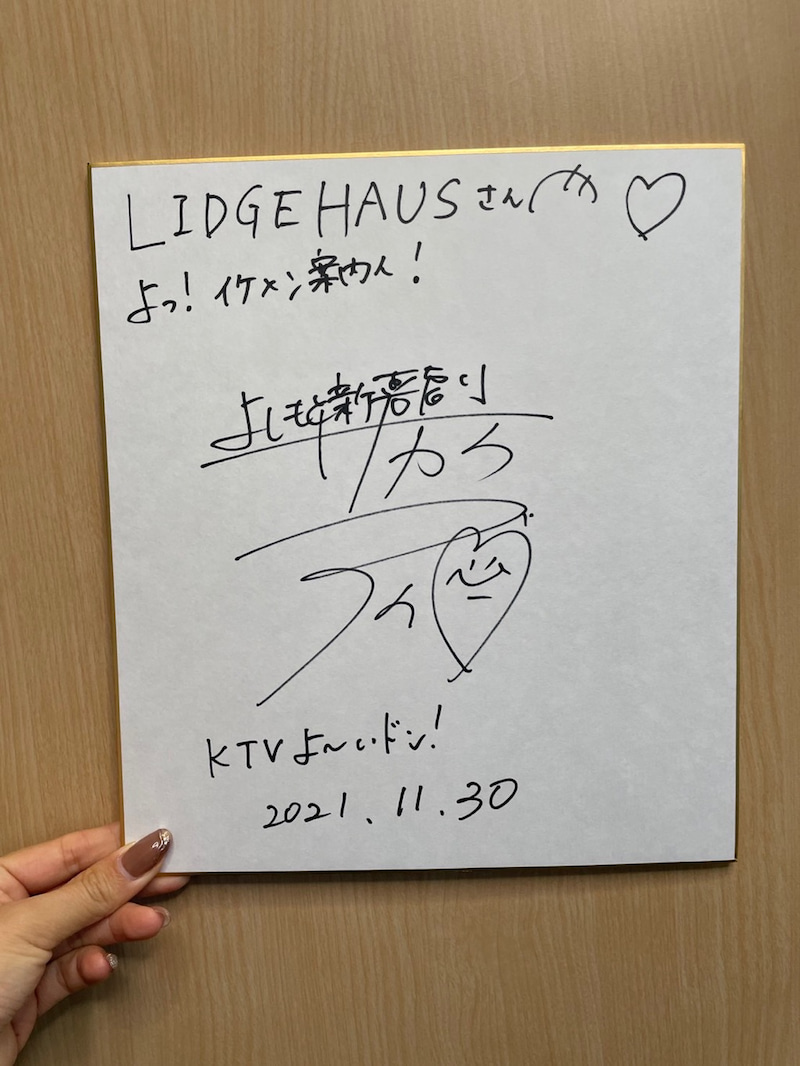 LIDGE HAUSさんへ
よっ!イケメン案内人!
よしもと新喜劇
KTVよ〜いドン!
2021.11.30